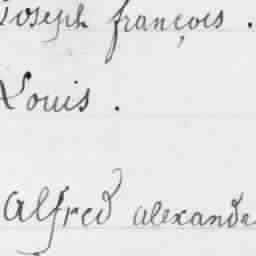 Joseph françois.
Louis.
Alfred alexandre